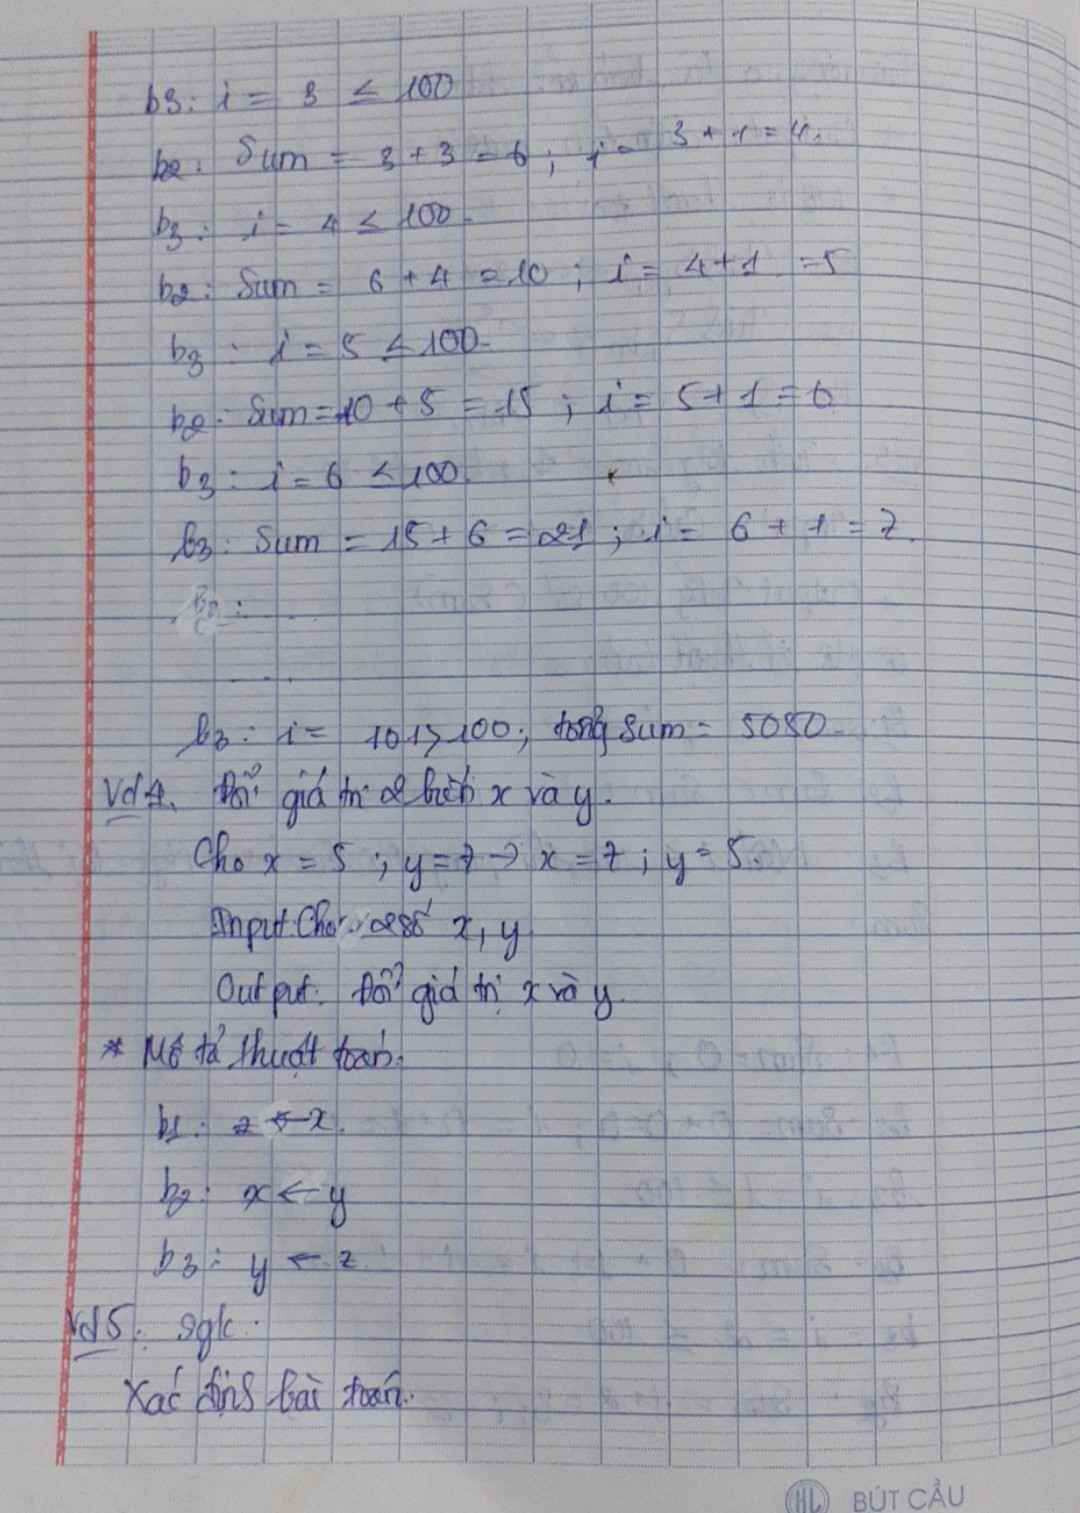 b3: i = 3 ≤ 100
b2: Sum = 3 + 3 = 6 ; i = 3 + 1 = 4.
b3: i = 4 ≤ 100.
b2: Sum = 6 + 4 = 10 ; i = 4+1 = 5
b3 : i = 5 ≤ 100.
b2: Sum = 10 + 5 = 15 ; i = 5+1 = 6
b3 : i = 6 ≤ 100.
b3: Sum = 15 + 6 = 21 ; i = 6 + 1 = 7.
B2: ....
....
b3: i = 101 > 100; tổng Sum = 5050.
Vd4. Đổi giá trị 2 biến x và y.
Cho x = 5 ; y = 7 → x = 7 ; y = 5.
Input: Cho 2 số x, y
Output: Đổi giá trị x và y.
* Mô tả thuật toán.
b1: z ← x.
b2: x ← y
b3: y ← z.
Vd5: sgk.
Xác định bài toán.
HL BÚT CẦU